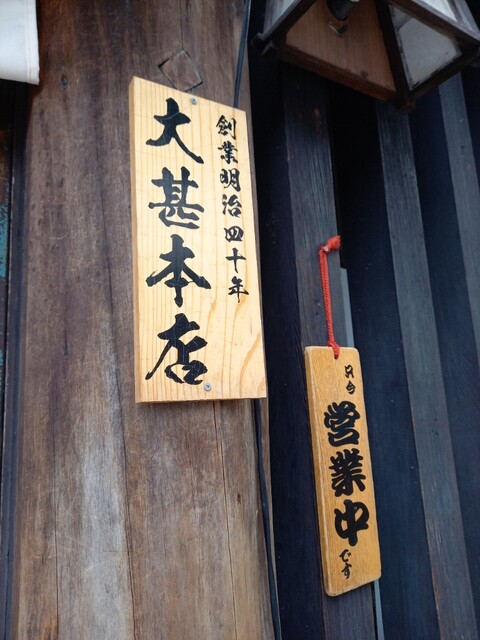 創業明治四十年
大甚本店
只今
営業中
です